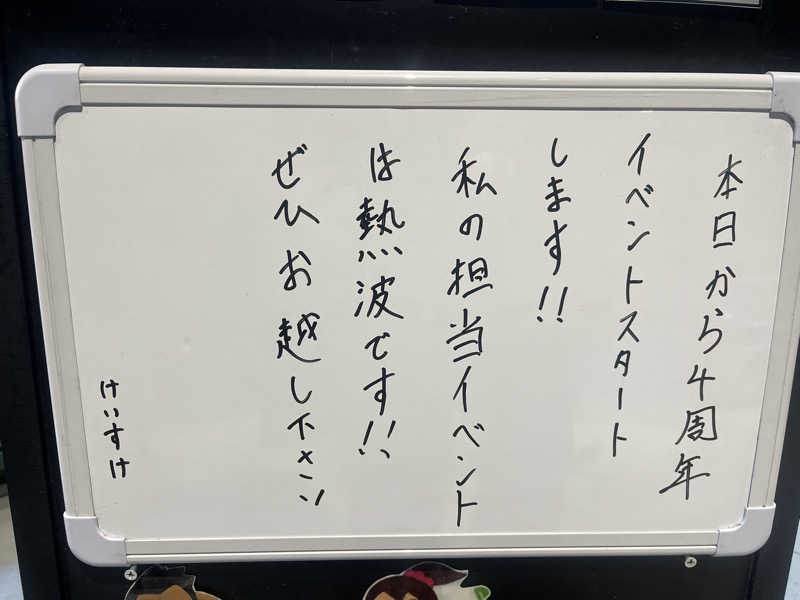 本日から4周年
イベントスタート
します!!
私の担当イベント
は熱波です!!
ぜひお越し下さい
けいすけ